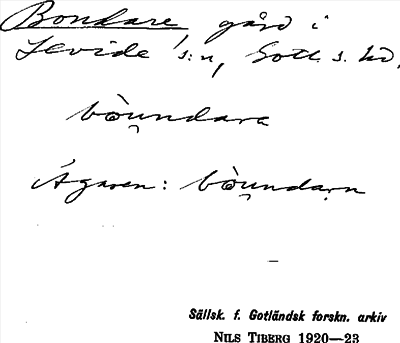 Bondare, gård i
Levide s:n, Gotl. s. hd.
bòu̯ndara
Ägaren: bòu̯ndaṛn
Sällsk. f. Gotländsk forskn. arkiv
NILS TIBERG 1920—23